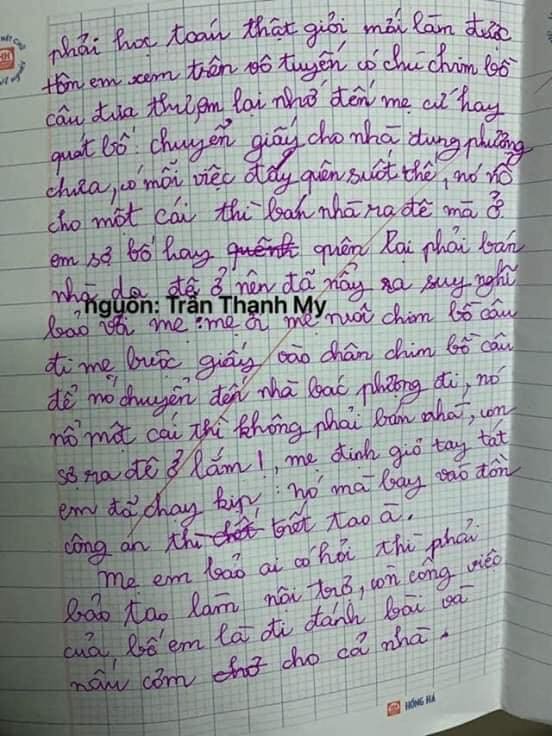 phải học toán thật giỏi mới làm được
hôm em xem trên vô tuyến có chú chim bồ
câu đưa thư, em lại nhớ đến mẹ cứ hay
quát bố: chuyển giấy cho nhà dung phương
chưa, có mỗi việc đấy quên suốt thế, nó nổ
cho một cái thì bán nhà ra đê mà ở
em sợ bố hay quên lại phải bán
nhà da đê ở nên đã nảy ra suy nghĩ
nguồn: Trần Thanh My
bảo với mẹ: mẹ ơi mẹ nuôi chim bồ câu
đi mẹ buộc giấy vào chân chim bồ câu
để nó chuyển đến nhà bác phương đi, nó
nổ một cái thì không phải bán nhà, con
sợ ra đê ở lắm!, mẹ định giơ tay tát
em đã chạy kịp: nó mà bay vào đồn
công an thì chết tao à.
Mẹ em bảo ai có hỏi thì phải
bảo tao làm nội trợ, còn công việc
của bố em là đi đánh bài và
nấu cơm cho cả nhà.
HỒNG HÀ